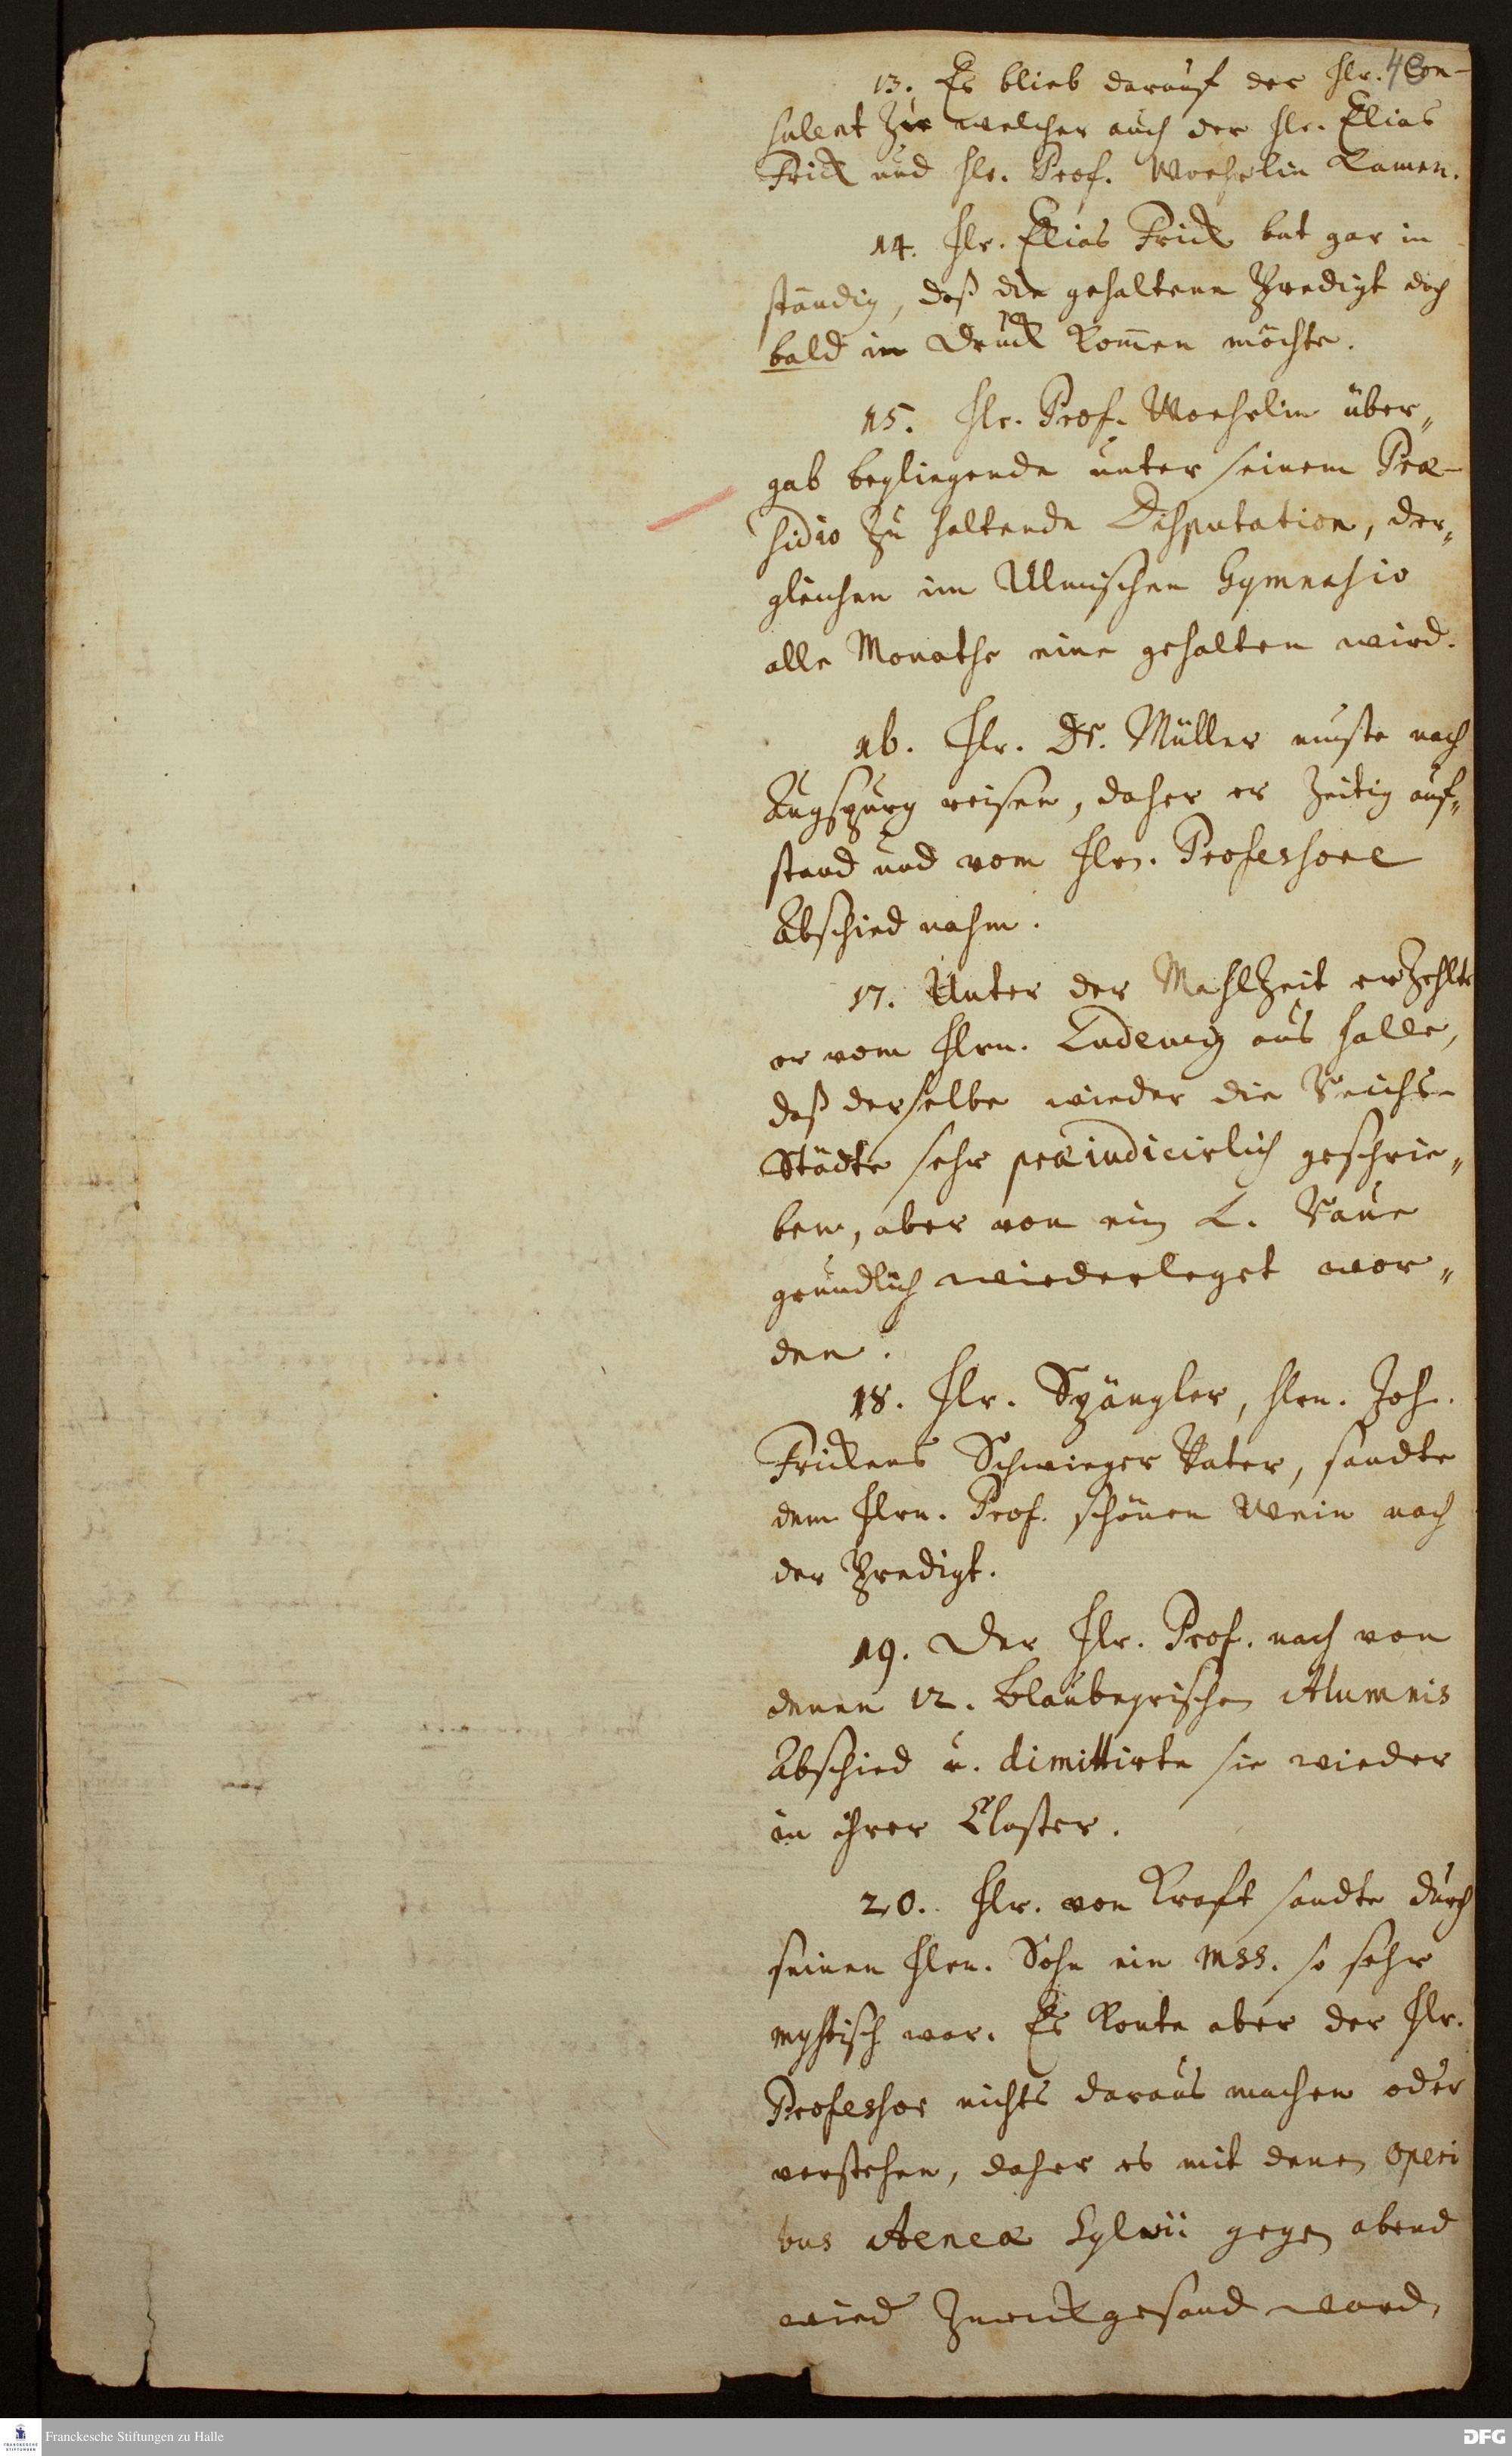 13. Es blieb darauf der Hr. Con-
sulent hie welcher auch der Hr. Elias
Frick und Hr. Prof. Woehrlin kamen.
14. Hr. Elias Frick bat gar in
ständig, daß die gehaltene Predigt doch
bald in Druck kom̄en möchte.
15. Hr. Prof. Woehrlin über„
gab beyliegende unter seinem Præ-
sidio zu haltende Disputation, der„
gleichen im Ulmischen Gymnasio
alle Monathe eine gehalten wird.
16. Hr. Dr. Müller muste nach
Augspurg reisen, daher er zeitig auf„
stand und vom Hrn. Professore
Abschied nahm.
17. Unter der MahlZeit erZehlte
er vom Hrn. Ludewig aus Halle,
daß derselbe wieder die Reichs-
Städte sehr præiudicirlich geschrie„
ben, aber von ein L.
gründlich wiederleget wor„
den.
18. Hr. Spängler, Hrn. Joh.
Frickens Schwieger Vater, sandte
dem Hrn. Prof. schönen Wein nach
der Predigt.
19. Der Hr. Prof. nach von
denen 12. Blaubeyrischen Alumnis
Abschied u. dimittirte sie wieder
in ihrer Closter.
20. Hr. von Kraft sandte durch
seinen Hrn. Sohn ein Mss. so sehr
mystisch war. Es konte aber der Hr.
Professor nichts daraus machen oder
verstehen, daher es mit denen Operi
bus Aeneæ Sylvii gegen abend
wied zurückgesand word.
Franckesche Stiftungen zu Halle
DFG